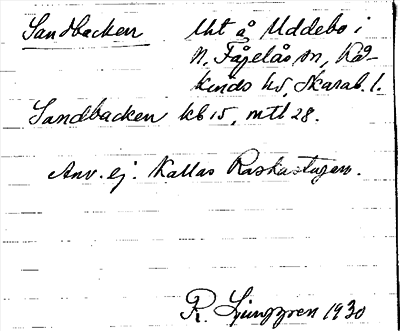 Sandbacken Uht å Uddebo i
N. Fågelås sn, Kå-
kinds hd, Skarab. l.
Sandbacken kb 15, mtl 28.
Anv. ej. Kallas Raskastugan.
R. Ljunggren 1930